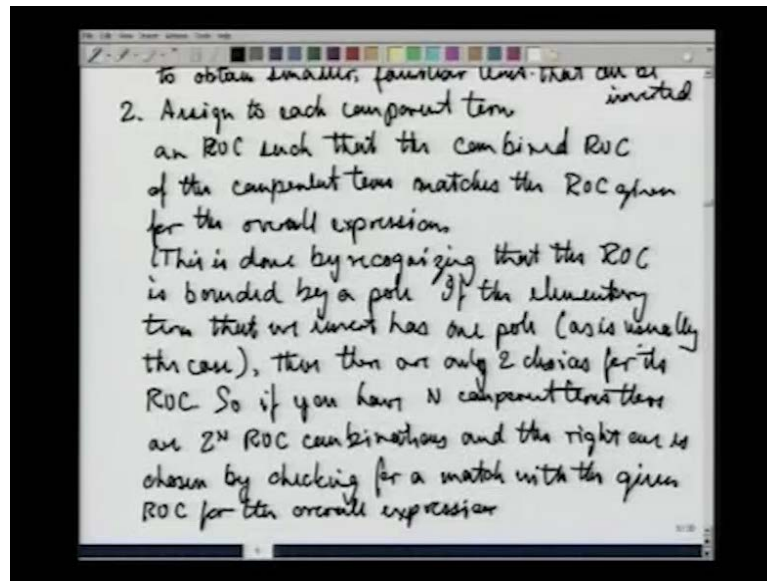 to obtain smaller, familiar terms that can be
inverted
2. Assign to each component term
an ROC such that the combined ROC
of the component terms matches the ROC given
for the overall expression.
(This is done by recognizing that the ROC
is bounded by a pole If the elementary
term that we invert has one pole (as is usually
the case), then there are only 2 choices for its
ROC. So if you have N component terms there
are 2^N ROC combinations and the right one is
chosen by checking for a match with the given
ROC for the overall expression